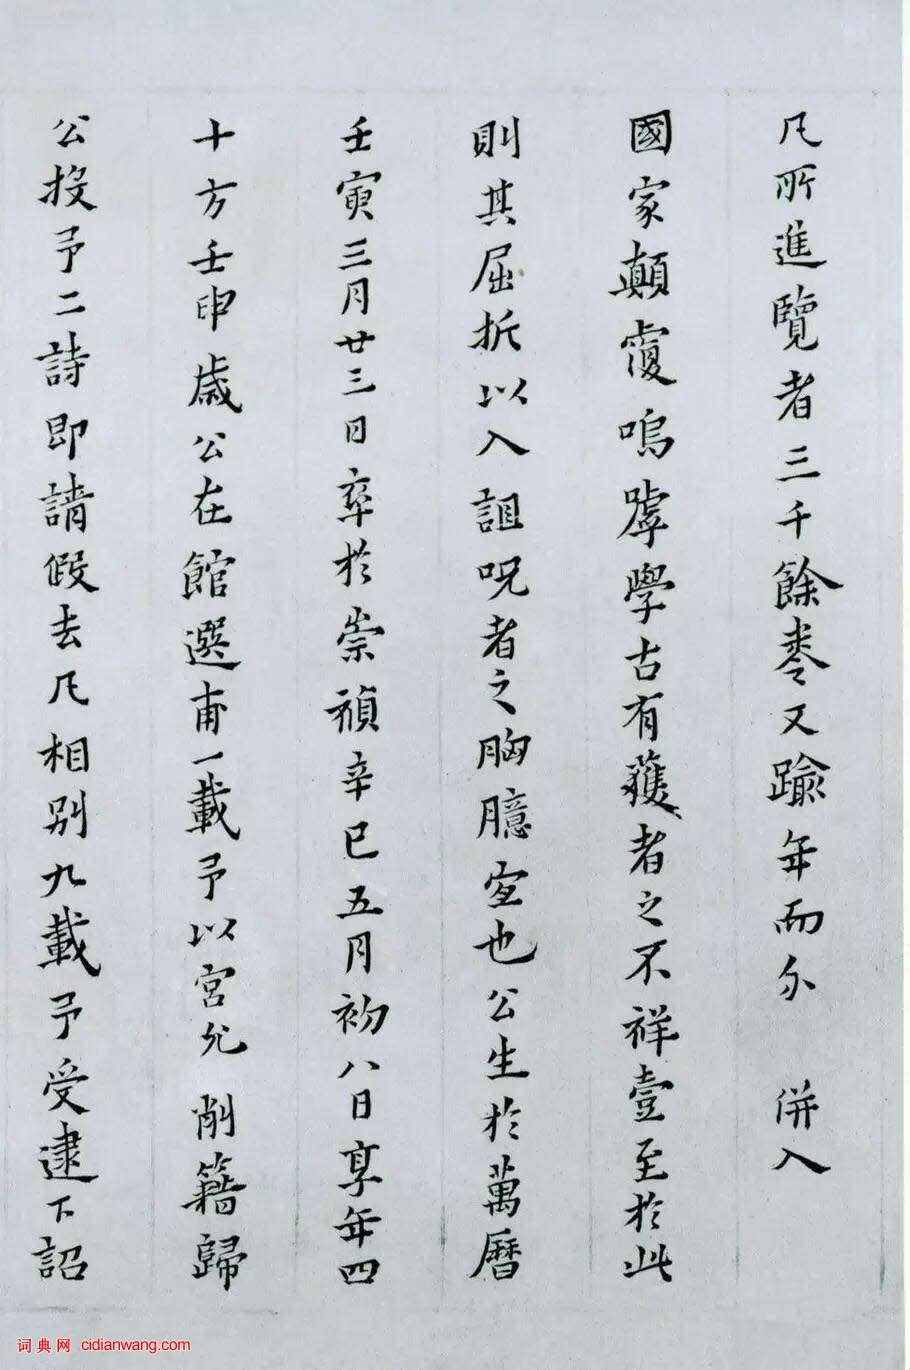 凡所進覽者三千餘卷又踰年而分 併入
國家顛覆嗚嘑學古有獲者之不祥壹至於此
則其屈折以入詛呪者之胸臆宜也公生於萬曆
壬寅三月廿三日卒於崇禎辛巳五月初八日享年四
十方壬申歲公在館選甫一載予以宮允 削籍歸
公投予二詩即請假去凡相別九載予受逮下詔
词典网 cidianwang.com